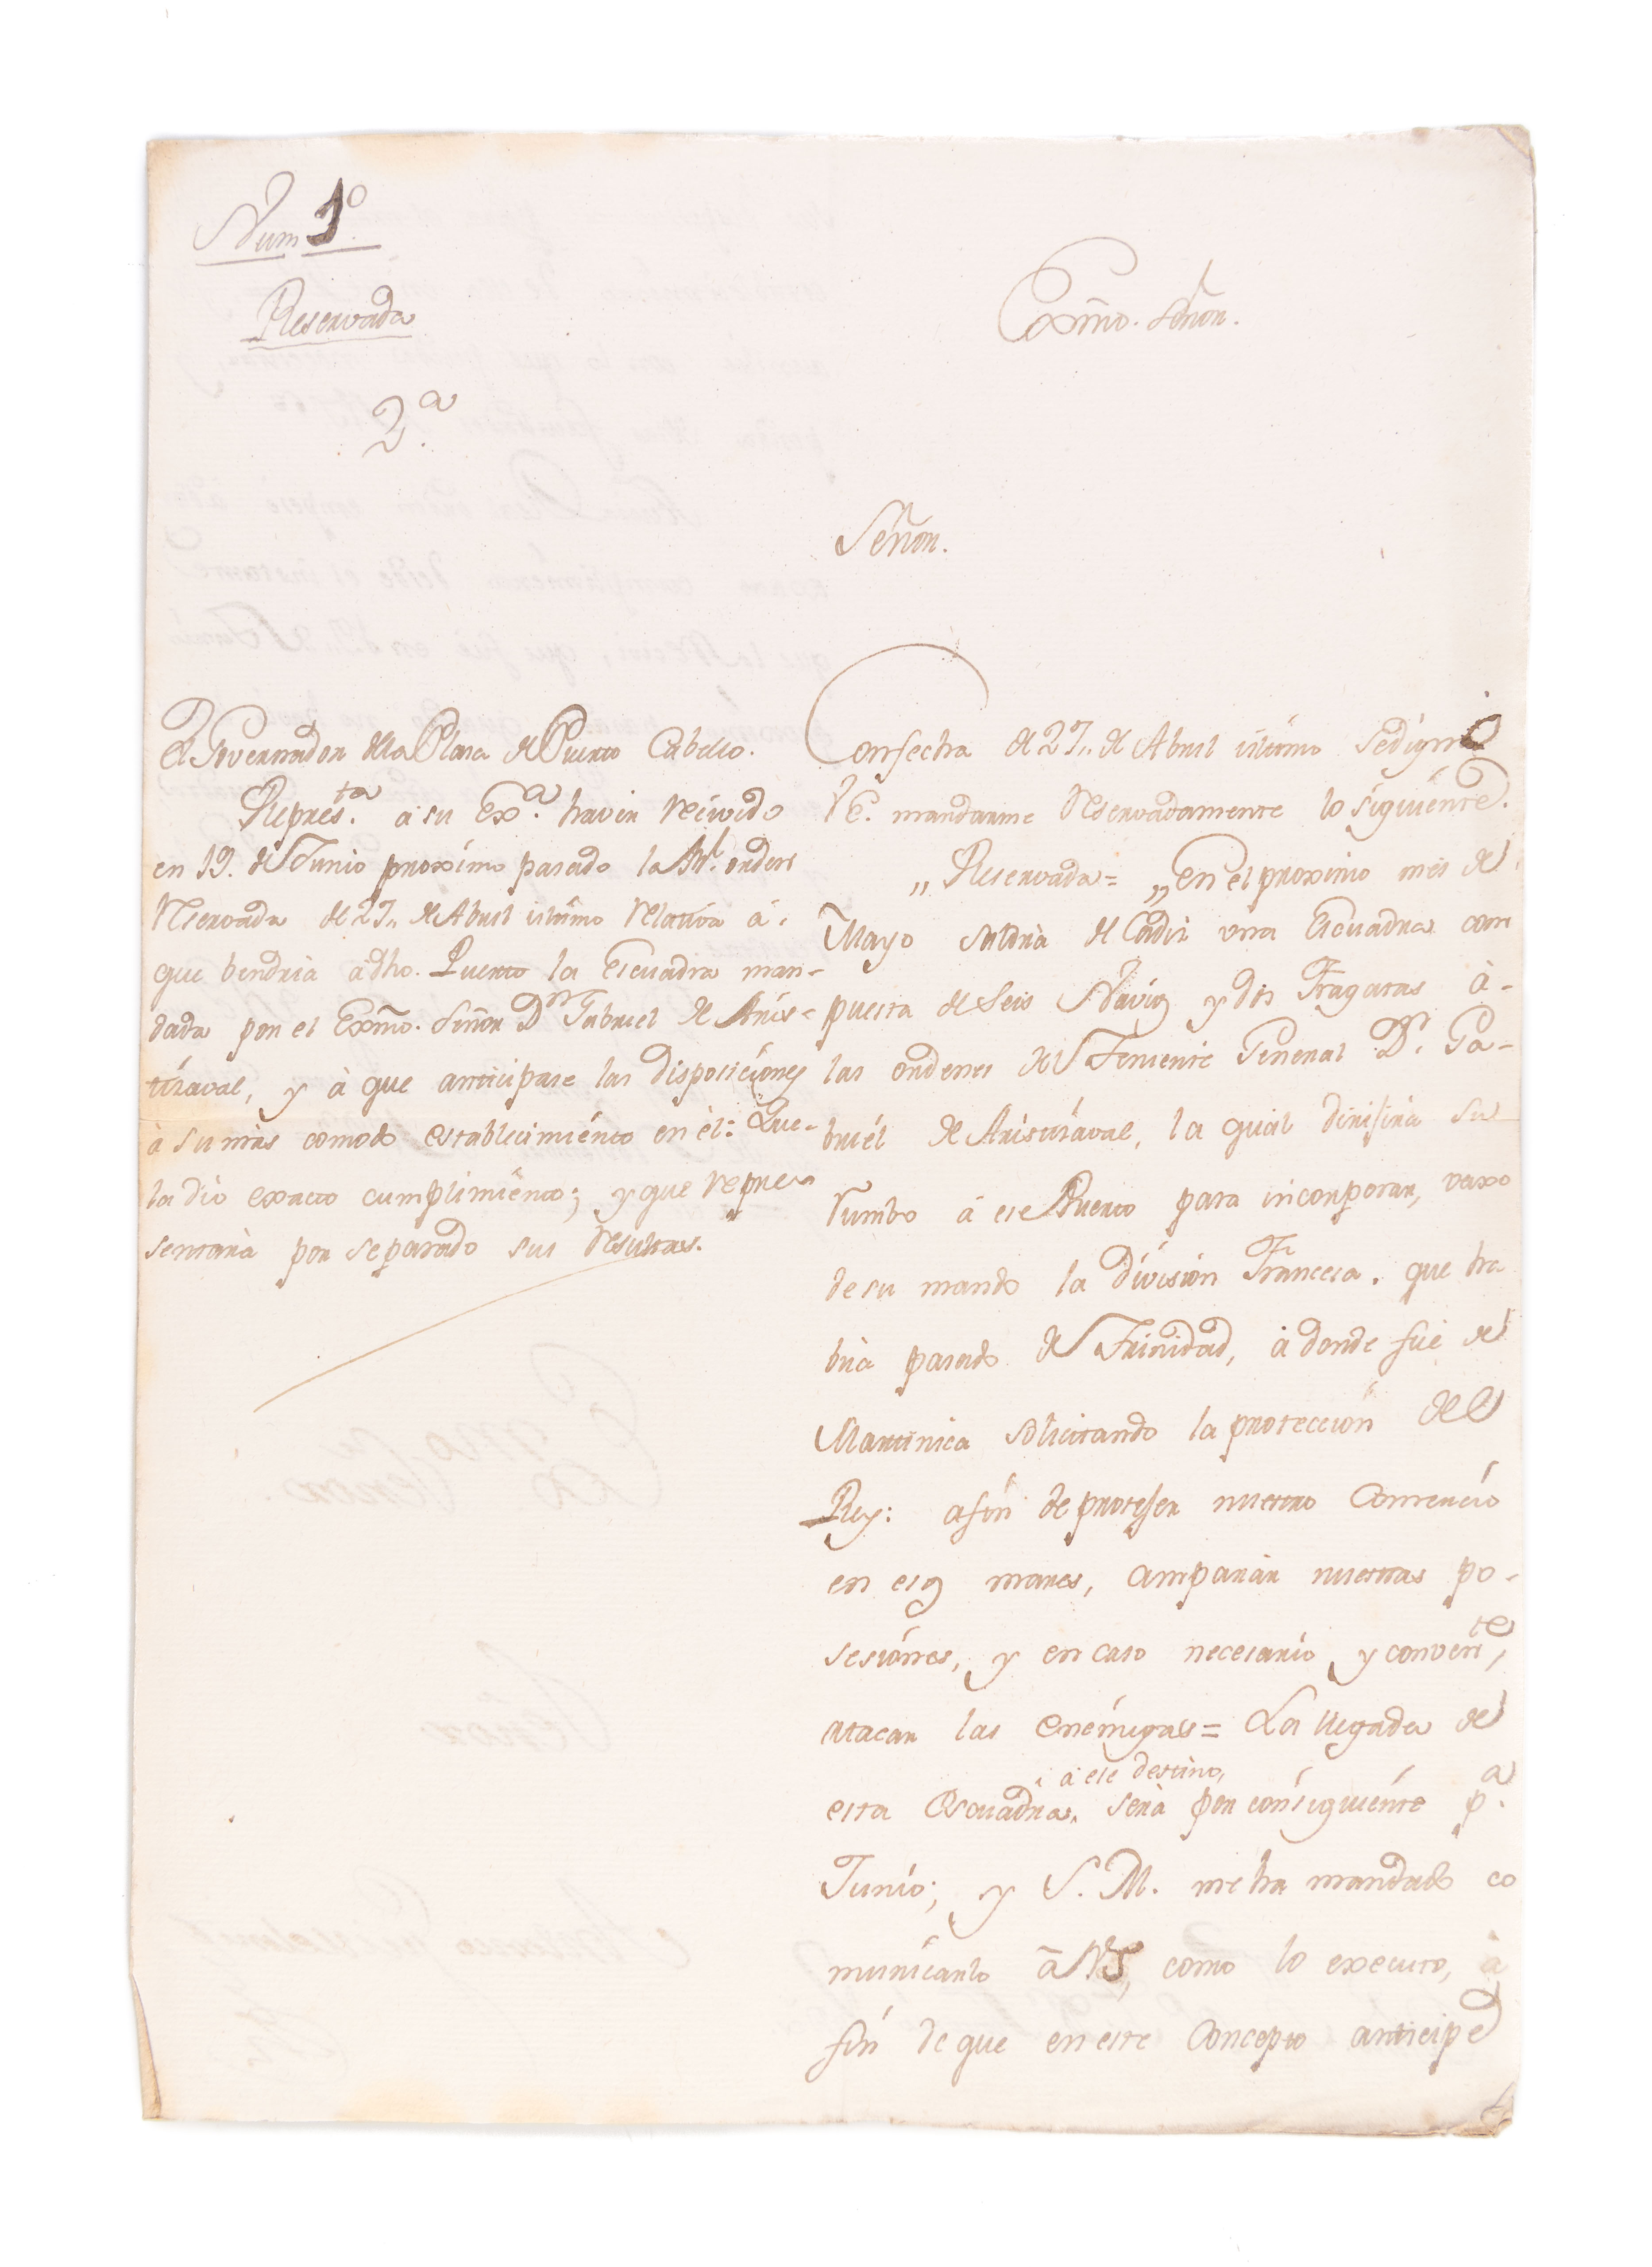 Num 1º.
Reservada
2.ª
Exm̃o. Señor.
Señor.
El Governador dela Plasa de Puerto Cabello.
Repres.ta a su Ex.ª haver recivido
en 19. del Junio proxímo pasado la Rl. orden
reservada de 27,, de Abril ultimo relativa á
que bendria á dho. Puerto la Escuadra man-
dada por el Exm̃o. Señor Dn Gabriel de Aris-
tizaval, y à que anticipase las disposiciones
à su mas comodo establecimiento en èl: Que
la dio exacto cumplimiento; y que repre-
sentarìa por separado sus resultas.
Con fecha de 27,, de Abril ultimo se digno
VE. mandarme reservadamente lo siguiente.
,, Reservada= ,, En el proximo mes de
Mayo saldrà de Cadiz una Escuadra com
puesta de Seis Navios y dos Fragatas à-
las ordenes del Teniente General Dn. Ga-
briel de Aristizaval, la qual dirijira su
rumbo à ese Puerto para incorporar, vaxo
de su mando la división Francesa. que ha
bia pasado de Trinidad, à donde fuè de
Martinica solicitando la protección del
Rey: a fin de protejer nuestro Comercio
en esos mares, amparàr nuestras po-
sesiones, y en caso necesario y convente,
atacar las Enemigas= La llegada de
esta Escuadra, à ese destino, serà por consiguiente p.ª
Junio; y S. M. me ha mandado co
municarlo à VS, como lo executo, à
fin de que en este Concepto anticipe